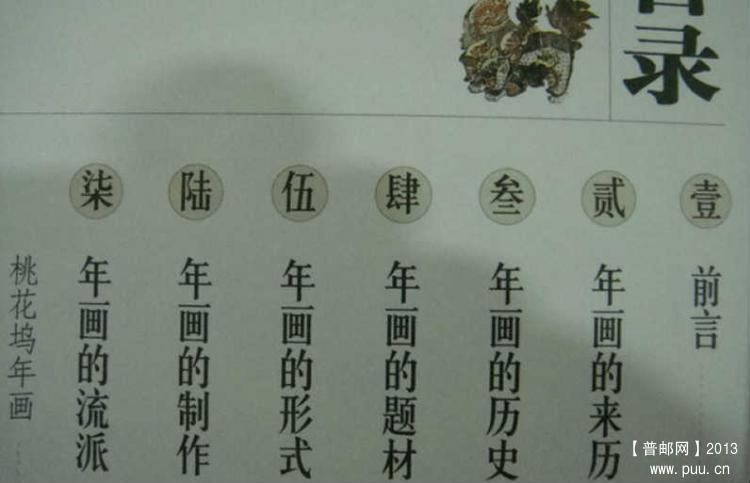 目录
壹
前言
贰
年画的来历
叁
年画的历史
肆
年画的题材
伍
年画的形式
陆
年画的制作
柒
年画的流派
桃花坞年画
【普邮网】2013
www.puu.cn